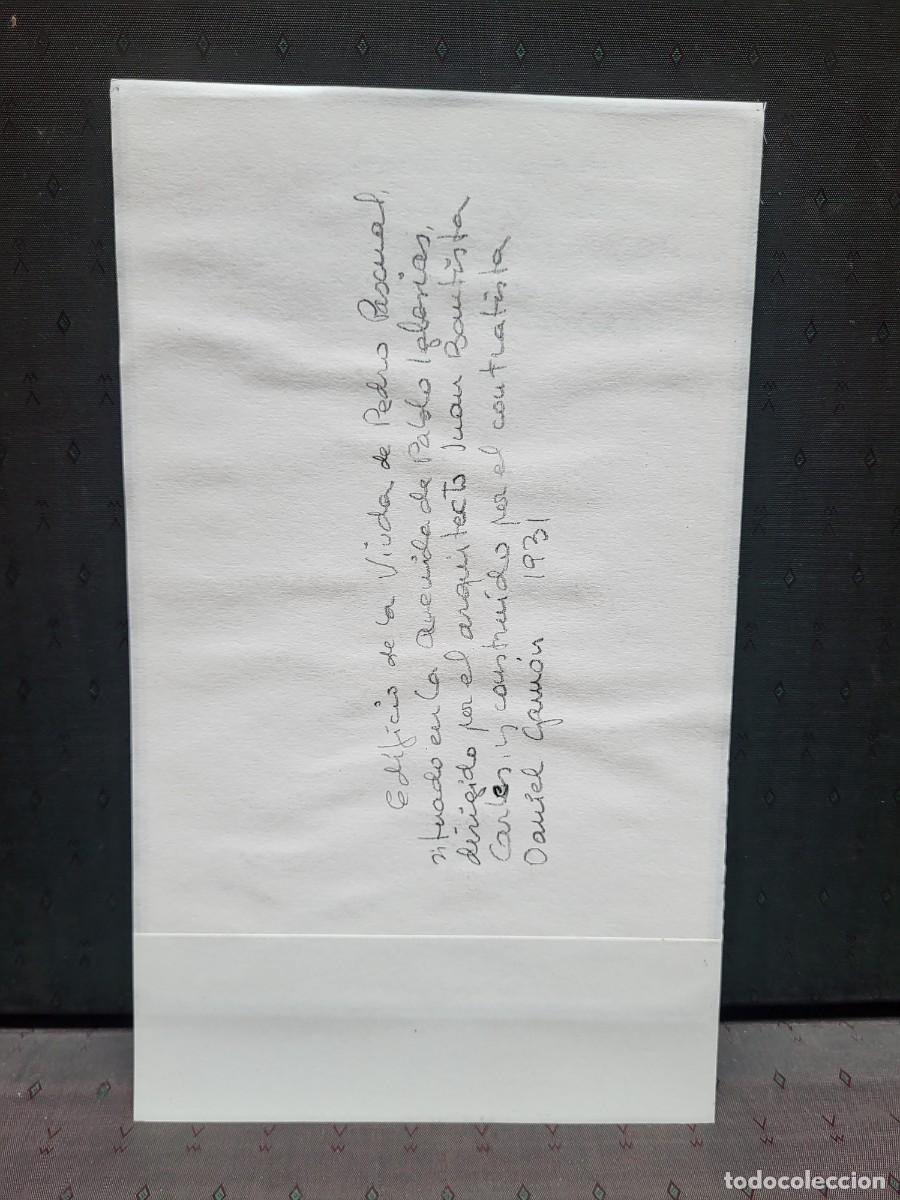 Edificio de la Viuda de Pedro Pascual,
situado en la Avenida de Pablo Iglesias,
dirigido por el arquitecto Juan Bautista
Carles, y construido por el contratista
Daniel Gamón 1931
todocoleccion